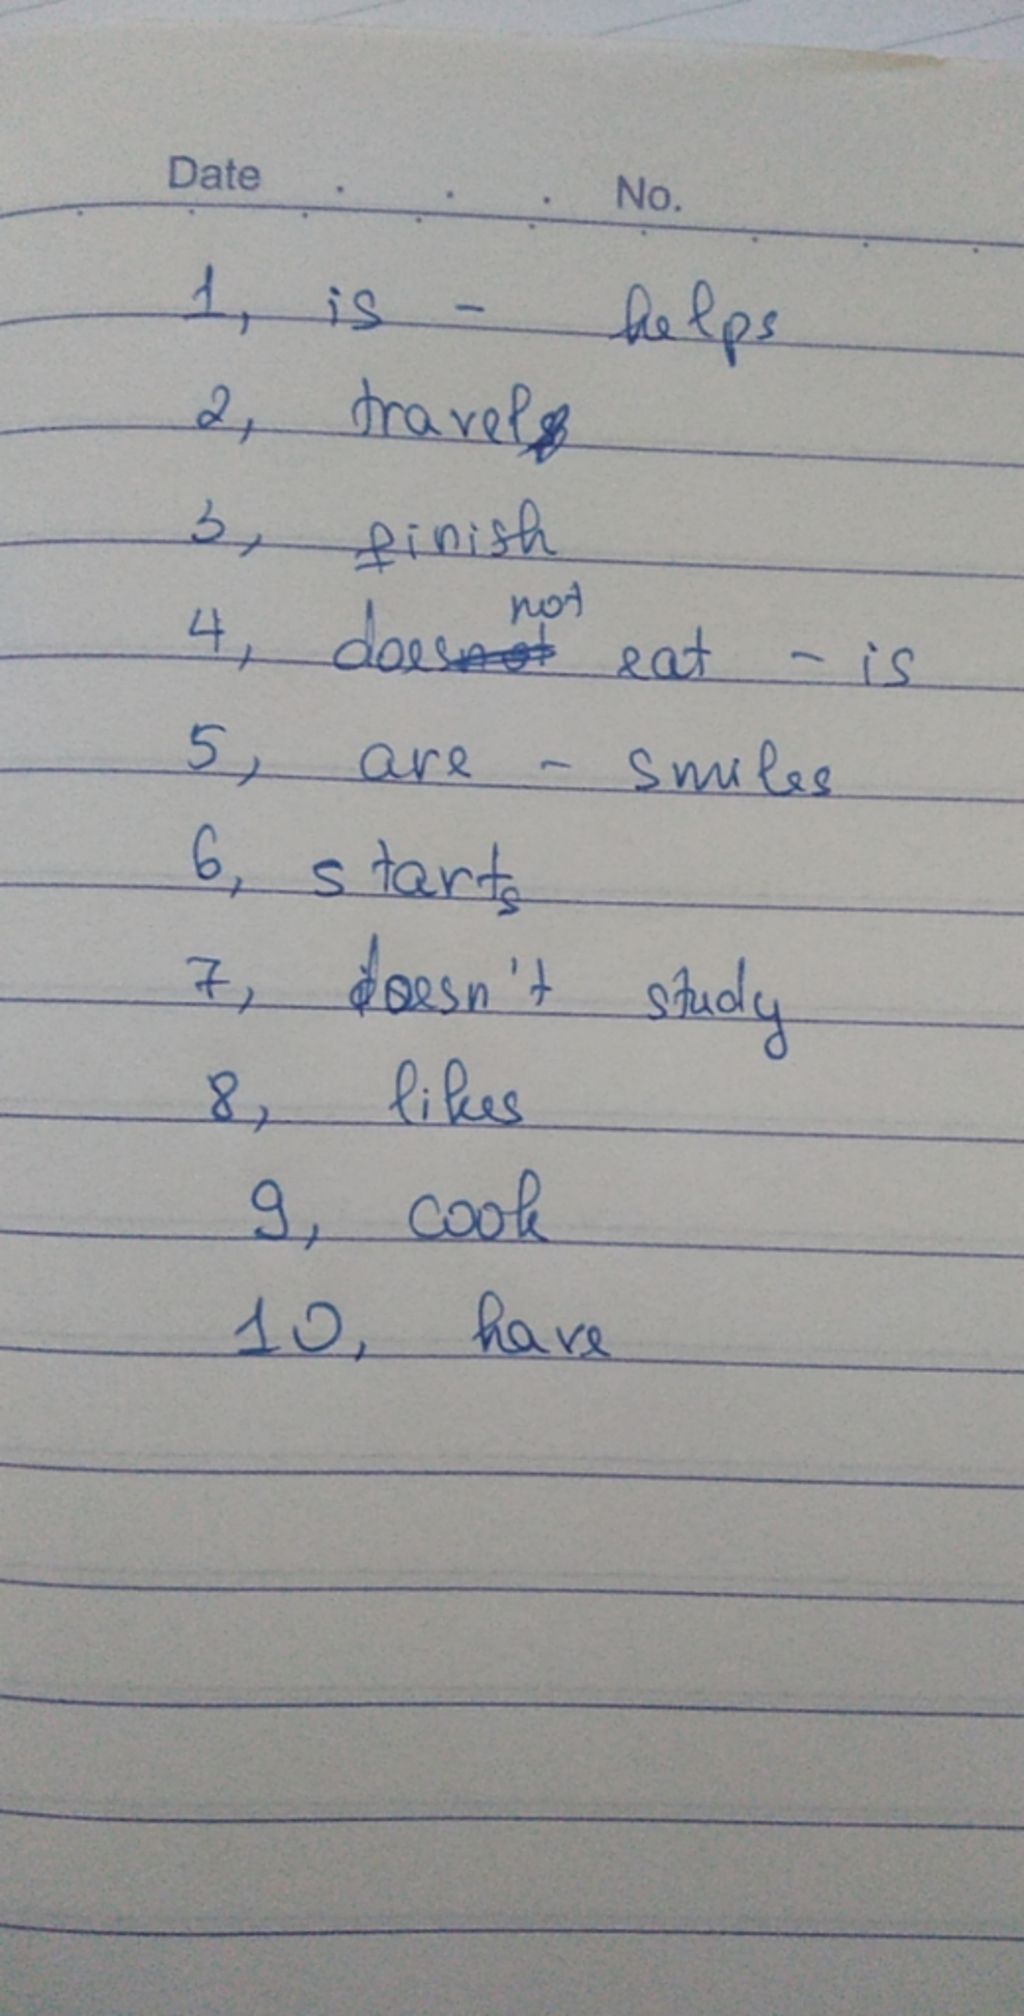 Date No.
1, is - helps
2, travel
3, finish
4, does not eat - is
5, are - smiles
6, starts
7, doesn't study
8, likes
9, cook
10, have